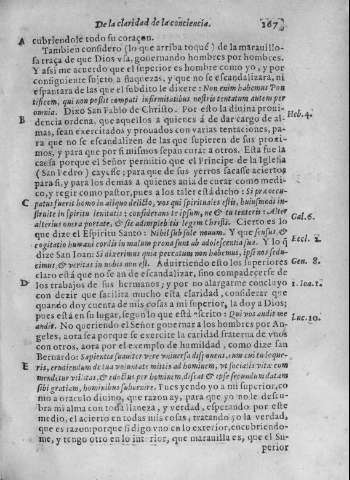 De la claridad de la conciencia. 267
A cubriendole todo su coraçon.
Tambien considero (lo que arriba toquè) de la marauillo-
sa traça de que Dios vsa, gouernando hombres por hombres.
Y assi me acuerdo que el superior es hombre como yo, y por
consiguiente sujeto a flaquezas, y que no se escandalizarà, ni
espantara de las que el subdito le dixere: Non enim habemus Pon
tificem, qui non possit compati infirmitatibus nostris tentatum autem per
omnia. Dixo San Pablo de Christo. Por esto la diuina proui-
Heb. 4.
B dencia ordena, que aquellos a quienes à de dar cargo de al-
mas, sean exercitados y prouados con varias tentaciones, pa-
ra que no se escandalizen de las que supieren de sus proxi-
mos, y para que por si mismos sepan curar a otros. Esta fue la
causa porque el Señor permitio que el Principe de la Iglesia
(San Pedro) cayesse; para que de sus yerros sacasse aciertos
para si, y para los demas a quienes auia de curar como medi-
co, y regir como pastor, pues a los tales està dicho: Si præoccu-
C patus fuerit homo in aliquo delicto, vos qui spirituales estis, huiusmodi in-
struite in spiritu lenitatis; considerans te ipsum, ne & tu tenteris: Alter
alterius onera portate, & sic adimplebitis legem Christi. Cierto es lo
Gal. 6.
que dize el Espiritu Santo: Nihil sub sole nouum. Y que sensus, &
Eccl. 1.
cogitatio humani cordis in malum prona sunt ab adolescentia sua. Y lo q̃
Gen. 8.
dize San Ioan: Si dixerimus quia peccatum non habemus, ipsi nos sedu-
cimus, & veritas in nobis non est. Aduirtiendo esto los superiores
claro està que no se an de escandalizar, sino compadecerse de
D los trabajos de sus hermanos; y por no alargarme concluyo
1. Ioa. 1.
con dezir que facilita mucho esta claridad, considerar que
quando doy cuenta de mis cosas a mi superior, la doy a Dios;
pues està en su lugar, segun lo que està escrito: Qui vos audit me
audit. No queriendo el Señor gouernar a los hombres por An-
Luc. 10.
geles, aora sea porque se exercite la caridad fraterna de vnos
con otros, aora por el exemplo de humildad, como dize san
Bernardo: Sapientia suauiter vere vniuersa disponens, cum cui te loque-
ris, erudiendum de tua voluntate mittis ad hominem, vt socialis vitæ com
E mendetur vtilitas, & edoctus per hominem, dicat & ipse secundum datam
sibi gratiam, hominibus subuenire. Pues yendo yo a mi superior, co
mo a oraculo diuino, que razon ay, para que yo no le descu-
bra mi alma con toda llaneza, y verdad, esperando por este
medio, el acierto en todas mis cosas, tratando yo la verdad,
que es razon: porque si digo vno en lo exterior, encubriendo-
me, y tengo otro en lo interior, que marauilla es, que el Su-
perior